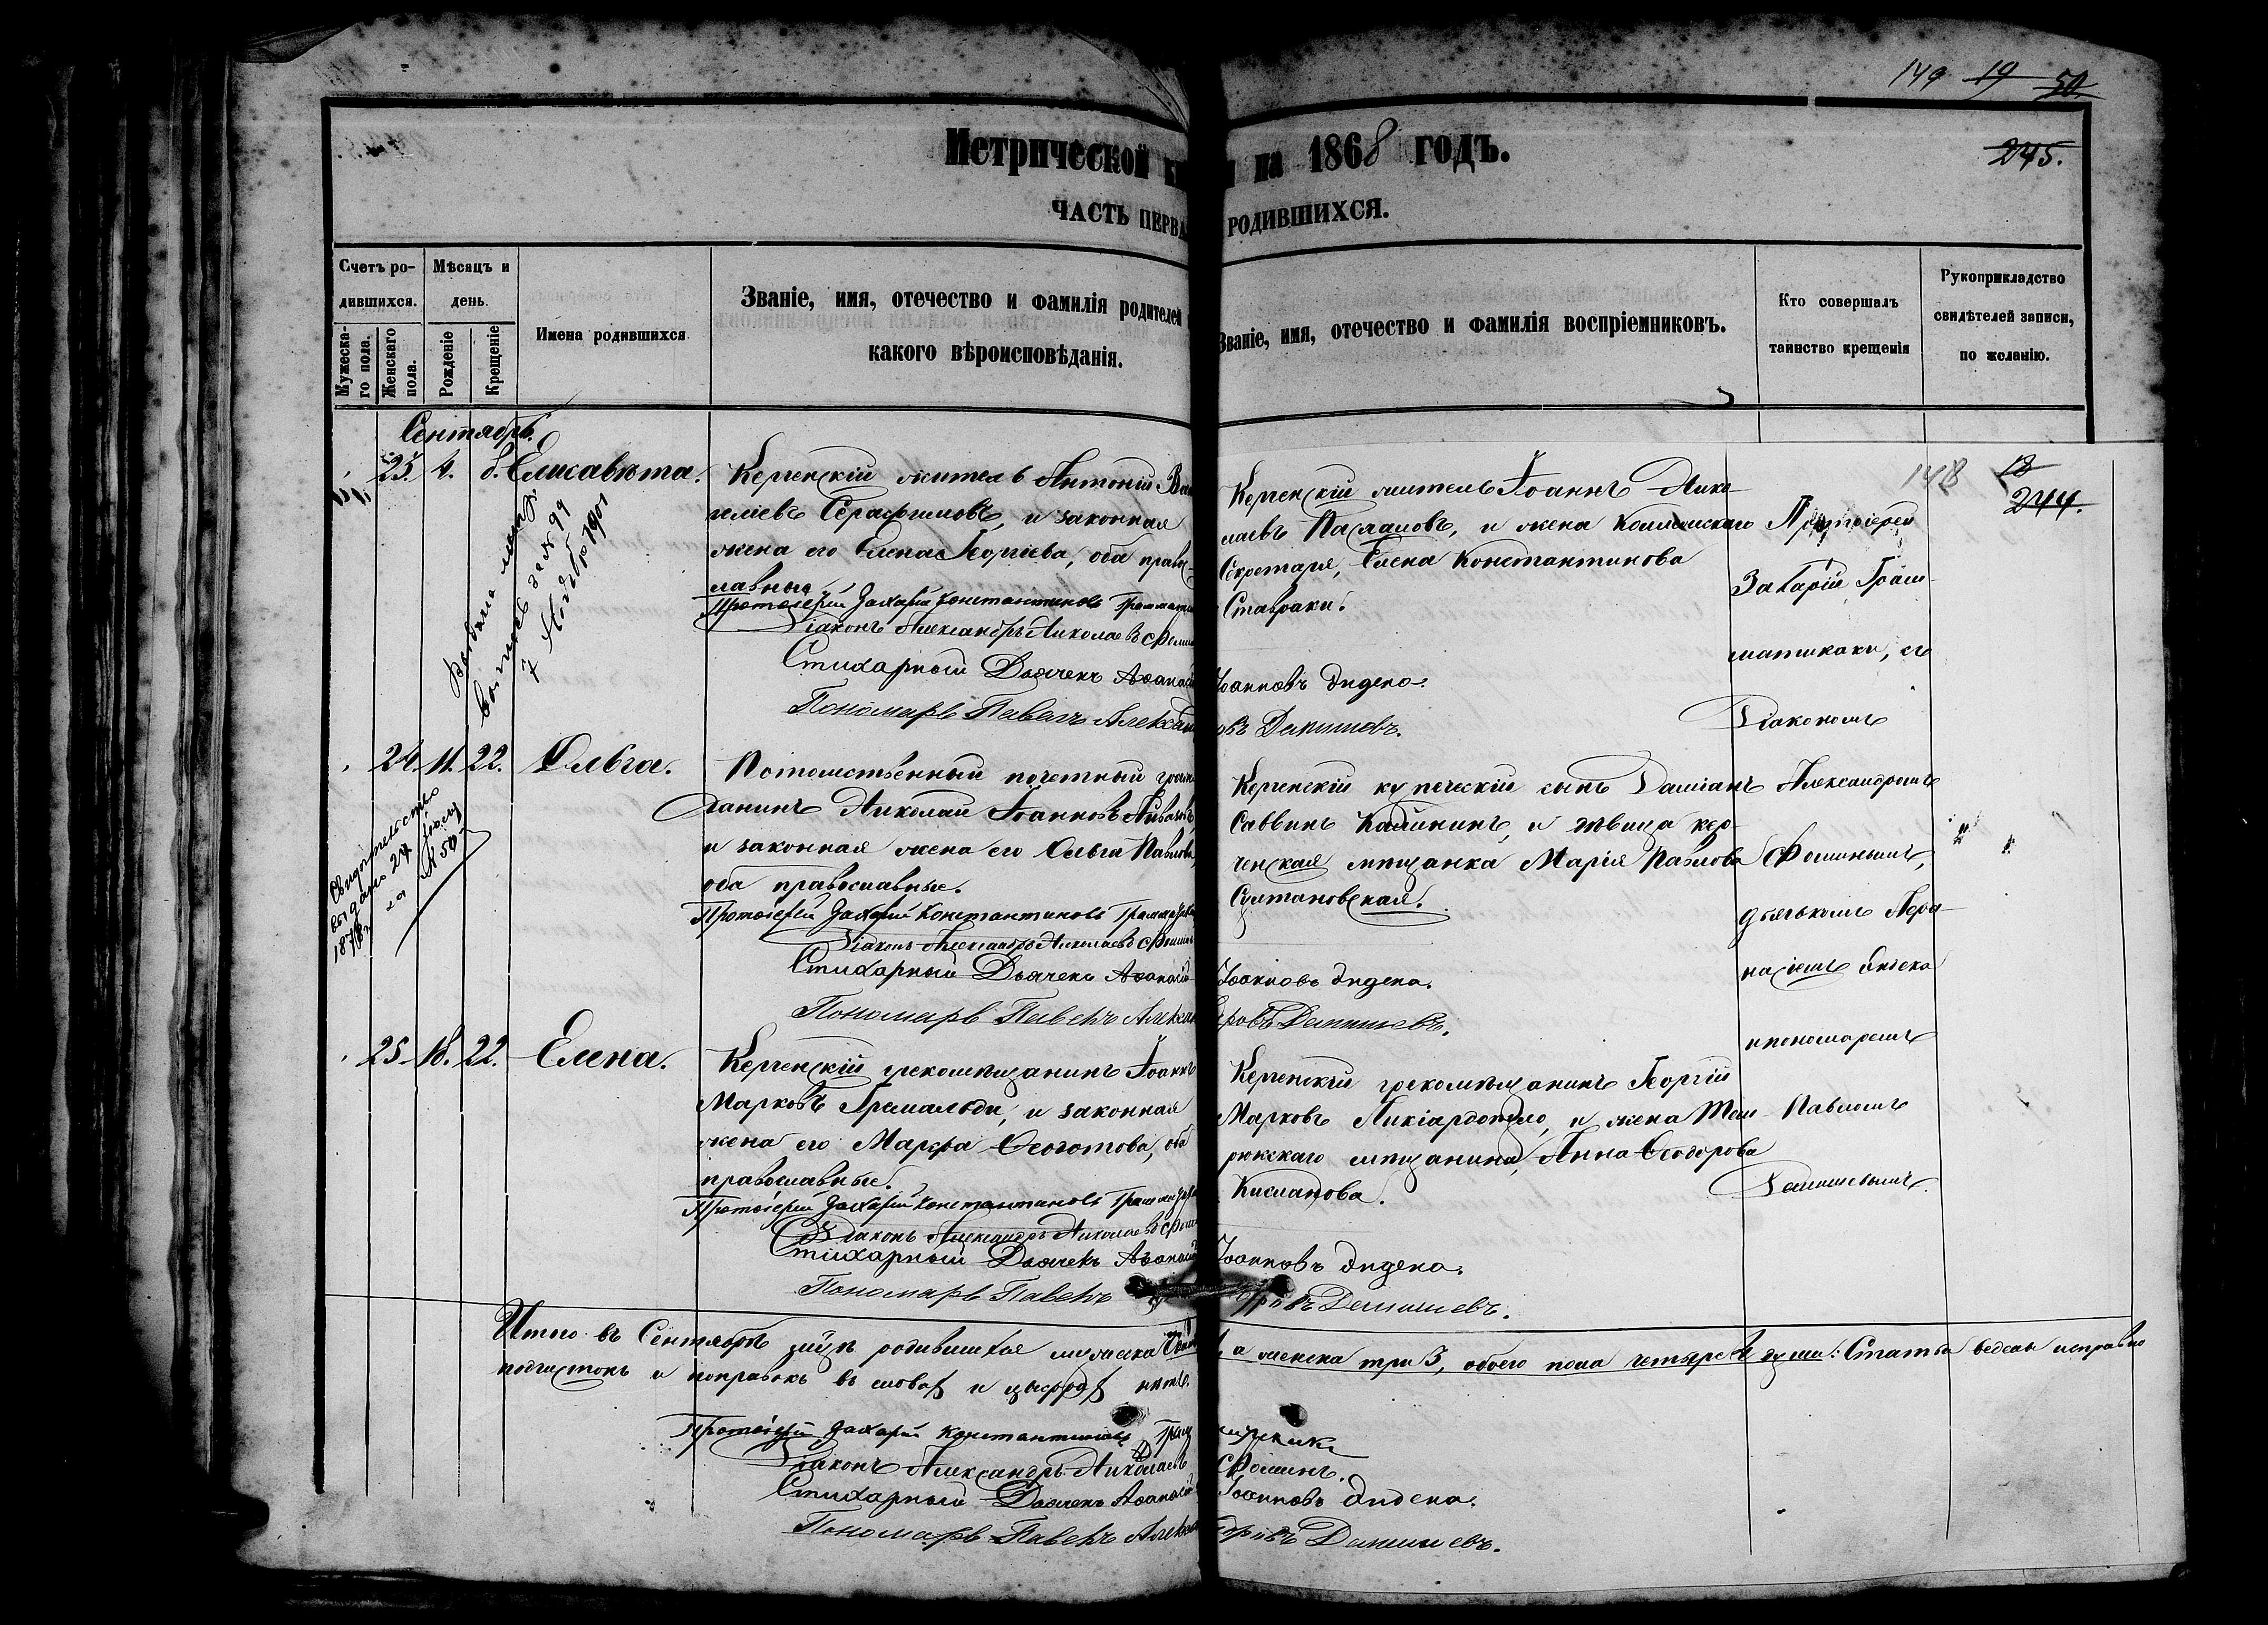 149 19 50.
Метрической кн и на 1868 годъ.
245.
ЧАСТЬ ПЕРВА РОДИВШИХСЯ.
Счетъ ро-
дившихся.
Мужеска-
го пола.
Женскаго
пола.
Мѣсяцъ и
день.
Рожденіе
Крещеніе
Имена родившихся
Званіе, имя, отечество и фамилія родителей
какого вѣроисповѣданія.
Званіе, имя, отечество и фамилія воспріемниковъ.
Кто совершалъ
таинство крещенія
Рукоприкладство
свидѣтелей записи,
по желанію.
Сентябрь.
23. 4. 8. Елисавѣта.
Керченскій житель Антоній Ва
силіевъ Серафимовъ, и законная
жена его Елена Георгіева, оба право-
славные.
Протоіерей Захарій Константиновъ Граммати
Діаконъ Александръ Николаевъ Фомин
Стихарный Дьячекъ Аѳанасій
Пономарь Павелъ Алексан
за № 99
7 Ноября 1901
Керченскій житель Іоаннъ Нико-
лаевъ Пасхаловъ, и жена Коллежскаго
Секретаря, Елена Константинова
Ставраки.
Іоанновъ Дидено.
овъ Демишевъ.
148 18
244.
Протоіерей
Захарій Грам-
матикаки, съ
Діакономъ
Александромъ
Фоминымъ,
дьячкомъ Аѳа-
насіемъ Дидено
и пономаремъ
Павломъ
Демишевымъ.
24. 11. 22. Ольга.
Свидѣтельство
выдано 24 Іюля
1878 г. за № 50
Потомственный почетный граж-
данинъ Николай Іоанновъ Айвазовъ,
и законная жена его Ольга Павлова,
оба православные.
Протоіерей Захарій Константиновъ Граммати
Діаконъ Александръ Николаевъ Фомин
Стихарный Дьячекъ Аѳанасій
Пономарь Павелъ Алексан
Керченскій купеческій сынъ Даміанъ
Саввинъ Калининъ, и дѣвица кер-
ченская мѣщанка Марія Павлова
Султановская.
Іоанновъ Дидено.
дровъ Демишевъ.
25. 18. 22. Елена.
Керченскій грекомѣщанинъ Іоаннъ
Марковъ Гримальди, и законная
жена его Марфа Ѳеодотова, оба
православные.
Протоіерей Захарій Константиновъ Граммати
Діаконъ Александръ Николаевъ Фомин
Стихарный Дьячекъ Аѳанасій
Пономарь Павелъ
Керченскій грекомѣщанинъ Георгій
Марковъ Ликіардопуло, и жена Тем-
рюкскаго мѣщанина, Анна Ѳеодорова
Кисланова.
Іоанновъ Дидено.
дровъ Демишевъ.
Итого въ Сентябрѣ мѣс. родившихся мужеска одинъ 1, а женска три 3, обоего пола четыре 4 души: Статьи ведены исправно
подчистокъ и поправокъ въ словахъ и цыфрахъ нѣтъ.
Протоіерей Захарій Константиновъ Грам матикаки
Діаконъ Александръ Николаевъ Фоминъ.
Стихарный Дьячекъ Аѳанасій Іоанновъ Дидено.
Пономарь Павелъ Алексан дровъ Демишевъ.